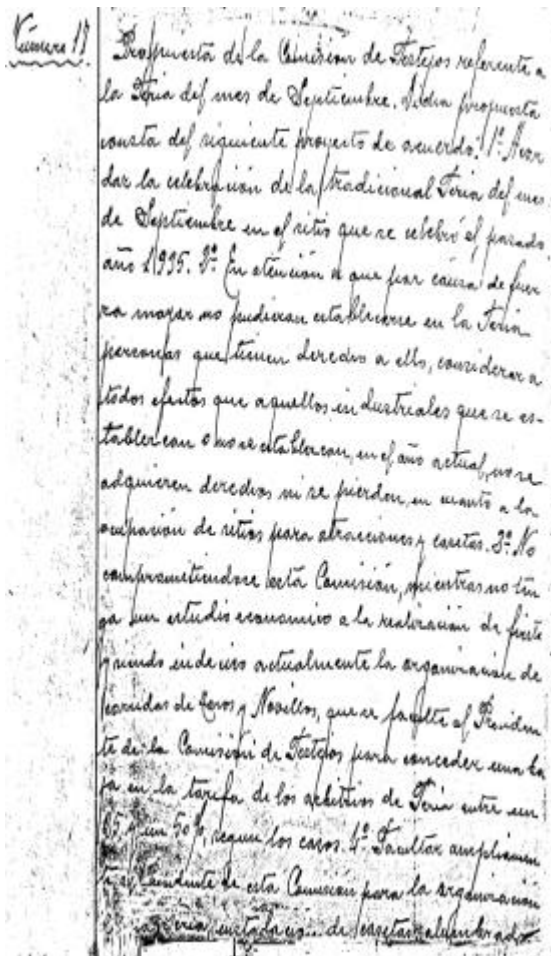 Número 17
Propuesta de la Comisión de Festejos referente a
la Feria del mes de Septiembre. Dicha propuesta
consta del siguiente proyecto de acuerdo: 1º Acor
dar la celebración de la tradicional Feria del mes
de Septiembre en el sitio que se celebró el pasado
año 1935. 2º En atención a que por causa de fuer
za mayor no pudieran establecerse en la Feria
personas que tienen derecho a ello, considerar a
todos efectos que aquellos industriales que se es-
tablezcan o no se establezcan, en el año actual, no se
adquieren derechos ni se pierden, en cuanto a la
ocupación de sitios para atracciones y casetas. 3º No
comprometiendose esta Comisión, mientras no ten
ga un estudio economico a la realización de fiestas
y siendo indeciso actualmente la organización de
corridas de Toros y Novillos, que se faculte al Presiden
te de la Comisión de Festejos para conceder una ba
ja en la tarifa de los arbitrios de Feria entre un
25 y un 50%, segun los casos. 4º Facultar ampliamen
te al Presidente de esta Comisión para la organización
Feria, instalación de casetas, alumbrado